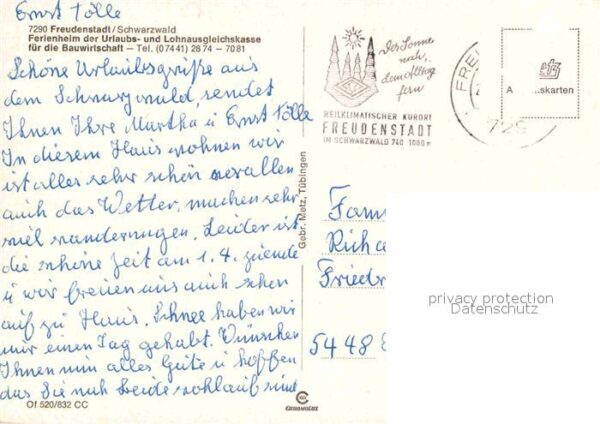 Ernst Tölle
7290 Freudenstadt / Schwarzwald
Ferienheim der Urlaubs- und Lohnausgleichskasse
für die Bauwirtschaft – Tel. (07441) 2874 – 7081
Schöne Urlaubsgrüße aus
dem Schwarzwald, sendet
Ihnen Ihre Martha u Ernst Tölle
In diesem Haus wohnen wir
ist alles sehr schön vorallen
auch das Wetter, machen sehr
viel wanderungen. Leider ist
die schöne Zeit am 1.4. zuende
u wir freuen uns auch schon
auf zu Haus. Schnee haben wir
nur einen Tag gehabt. Wünschen
Ihnen nun alles Gute u hoffen
das Sie noch beide wohlauf sind
Of 520/832 CC
Gebr. Metz, Tübingen
CHROMOLUX
Der Sonne
nah,
dem Alltag
fern
HEILKLIMATISCHER KURORT
FREUDENSTADT
IM SCHWARZWALD 740 1000 m
FRE
729
A ...skarten
Fam
Rich
Friedr
5448
privacy protection
Datenschutz